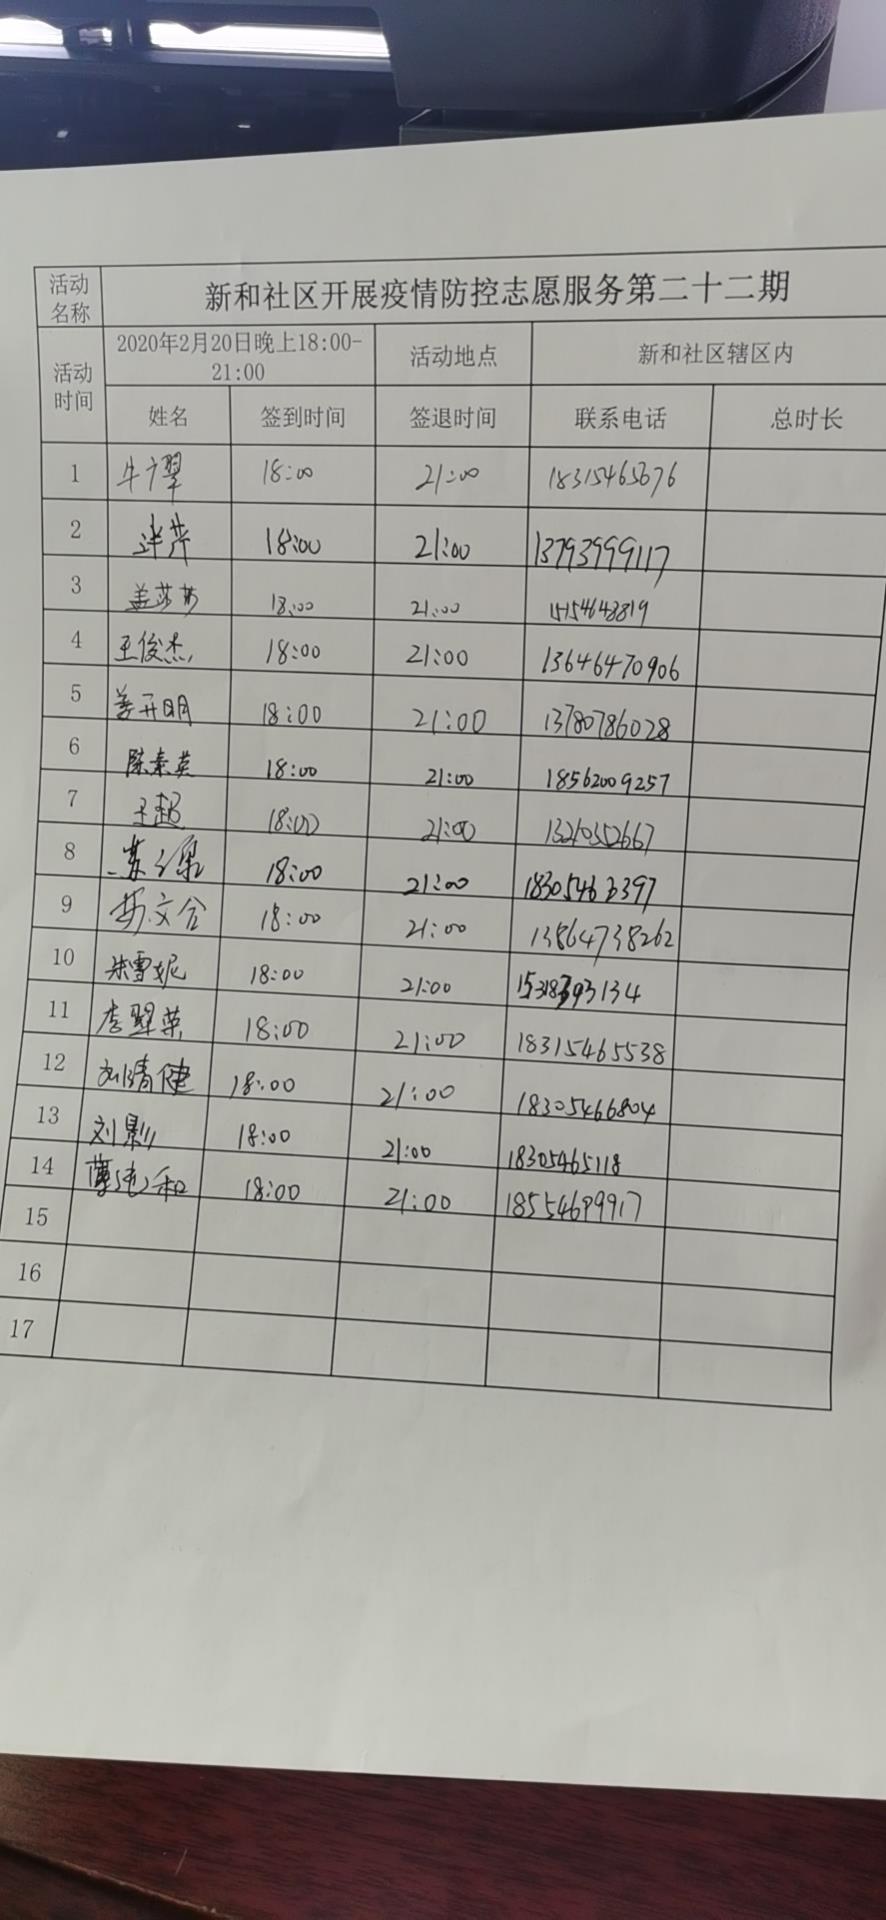 活动名称 新和社区开展疫情防控志愿服务第二十二期
活动时间 2020年2月20日晚上18:00-21:00 活动地点 新和社区辖区内
姓名 签到时间 签退时间 联系电话 总时长
1 18:00 21:00 18315465676
2 18:00 21:00 13793999117
3 盖莎莎 18:00 21:00 15154648819
4 王俊杰 18:00 21:00 13646470906
5 姜开明 18:00 21:00 13780786028
6 陈素英 18:00 21:00 18562009257
7 王超 18:00 21:00 13210352667
8 18:00 21:00 18305463397
9 苏文合 18:00 21:00 13864738262
10 朱雪妮 18:00 21:00 15318393134
11 李翠荣 18:00 21:00 18315465538
12 刘清健 18:00 21:00 18305466804
13 刘影 18:00 21:00 18305465118
14 18:00 21:00 18554699917
15
16
17